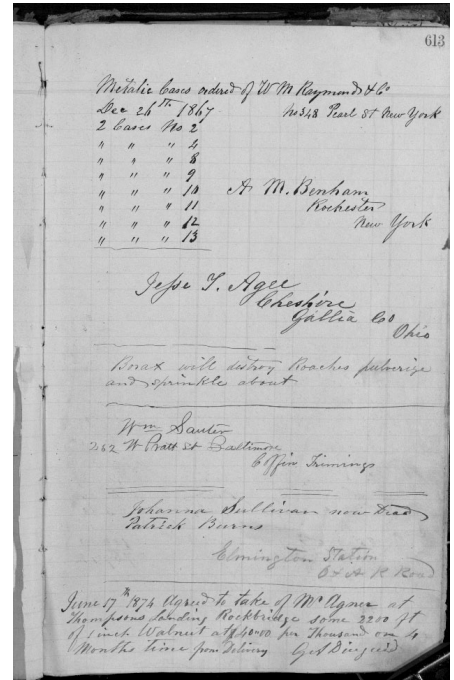 613
Metalic Cases ordered of W M Raymond & Co
Dec 26th 1867 No 348 Pearl St New York
2 Cases No 2
" " " 4
" " " 8
" " " 9
" " " 10
" " " 11
" " " 12
" " " 13
A. M. Benham
Rochester
New York
Jesse T. Agee
Cheshire
Gallia Co
Ohio
Borax will distroy Roaches pulverize
and sprinkle about
Wm Sauter
252 W Pratt St Baltimore
Coffin Trimings
Johanna Sullivan now Dead
Patrick Burns
Elmington Station
O & A R Road
June 17th 1874 Agreed to take of Mr Agner at
Thompsons Landing Rockbridge some 2200 ft
of 1 inch Walnut at $40.00 per Thousand on 4
Months time from Delivery